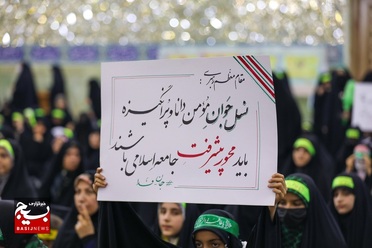 مقام معظم رهبری:
نسل جوان مؤمن دانا و پرانگیزه
باید محور پیشرفت جامعه اسلامی باشند
خبرگزاری
بسیج
BASIJNEWS